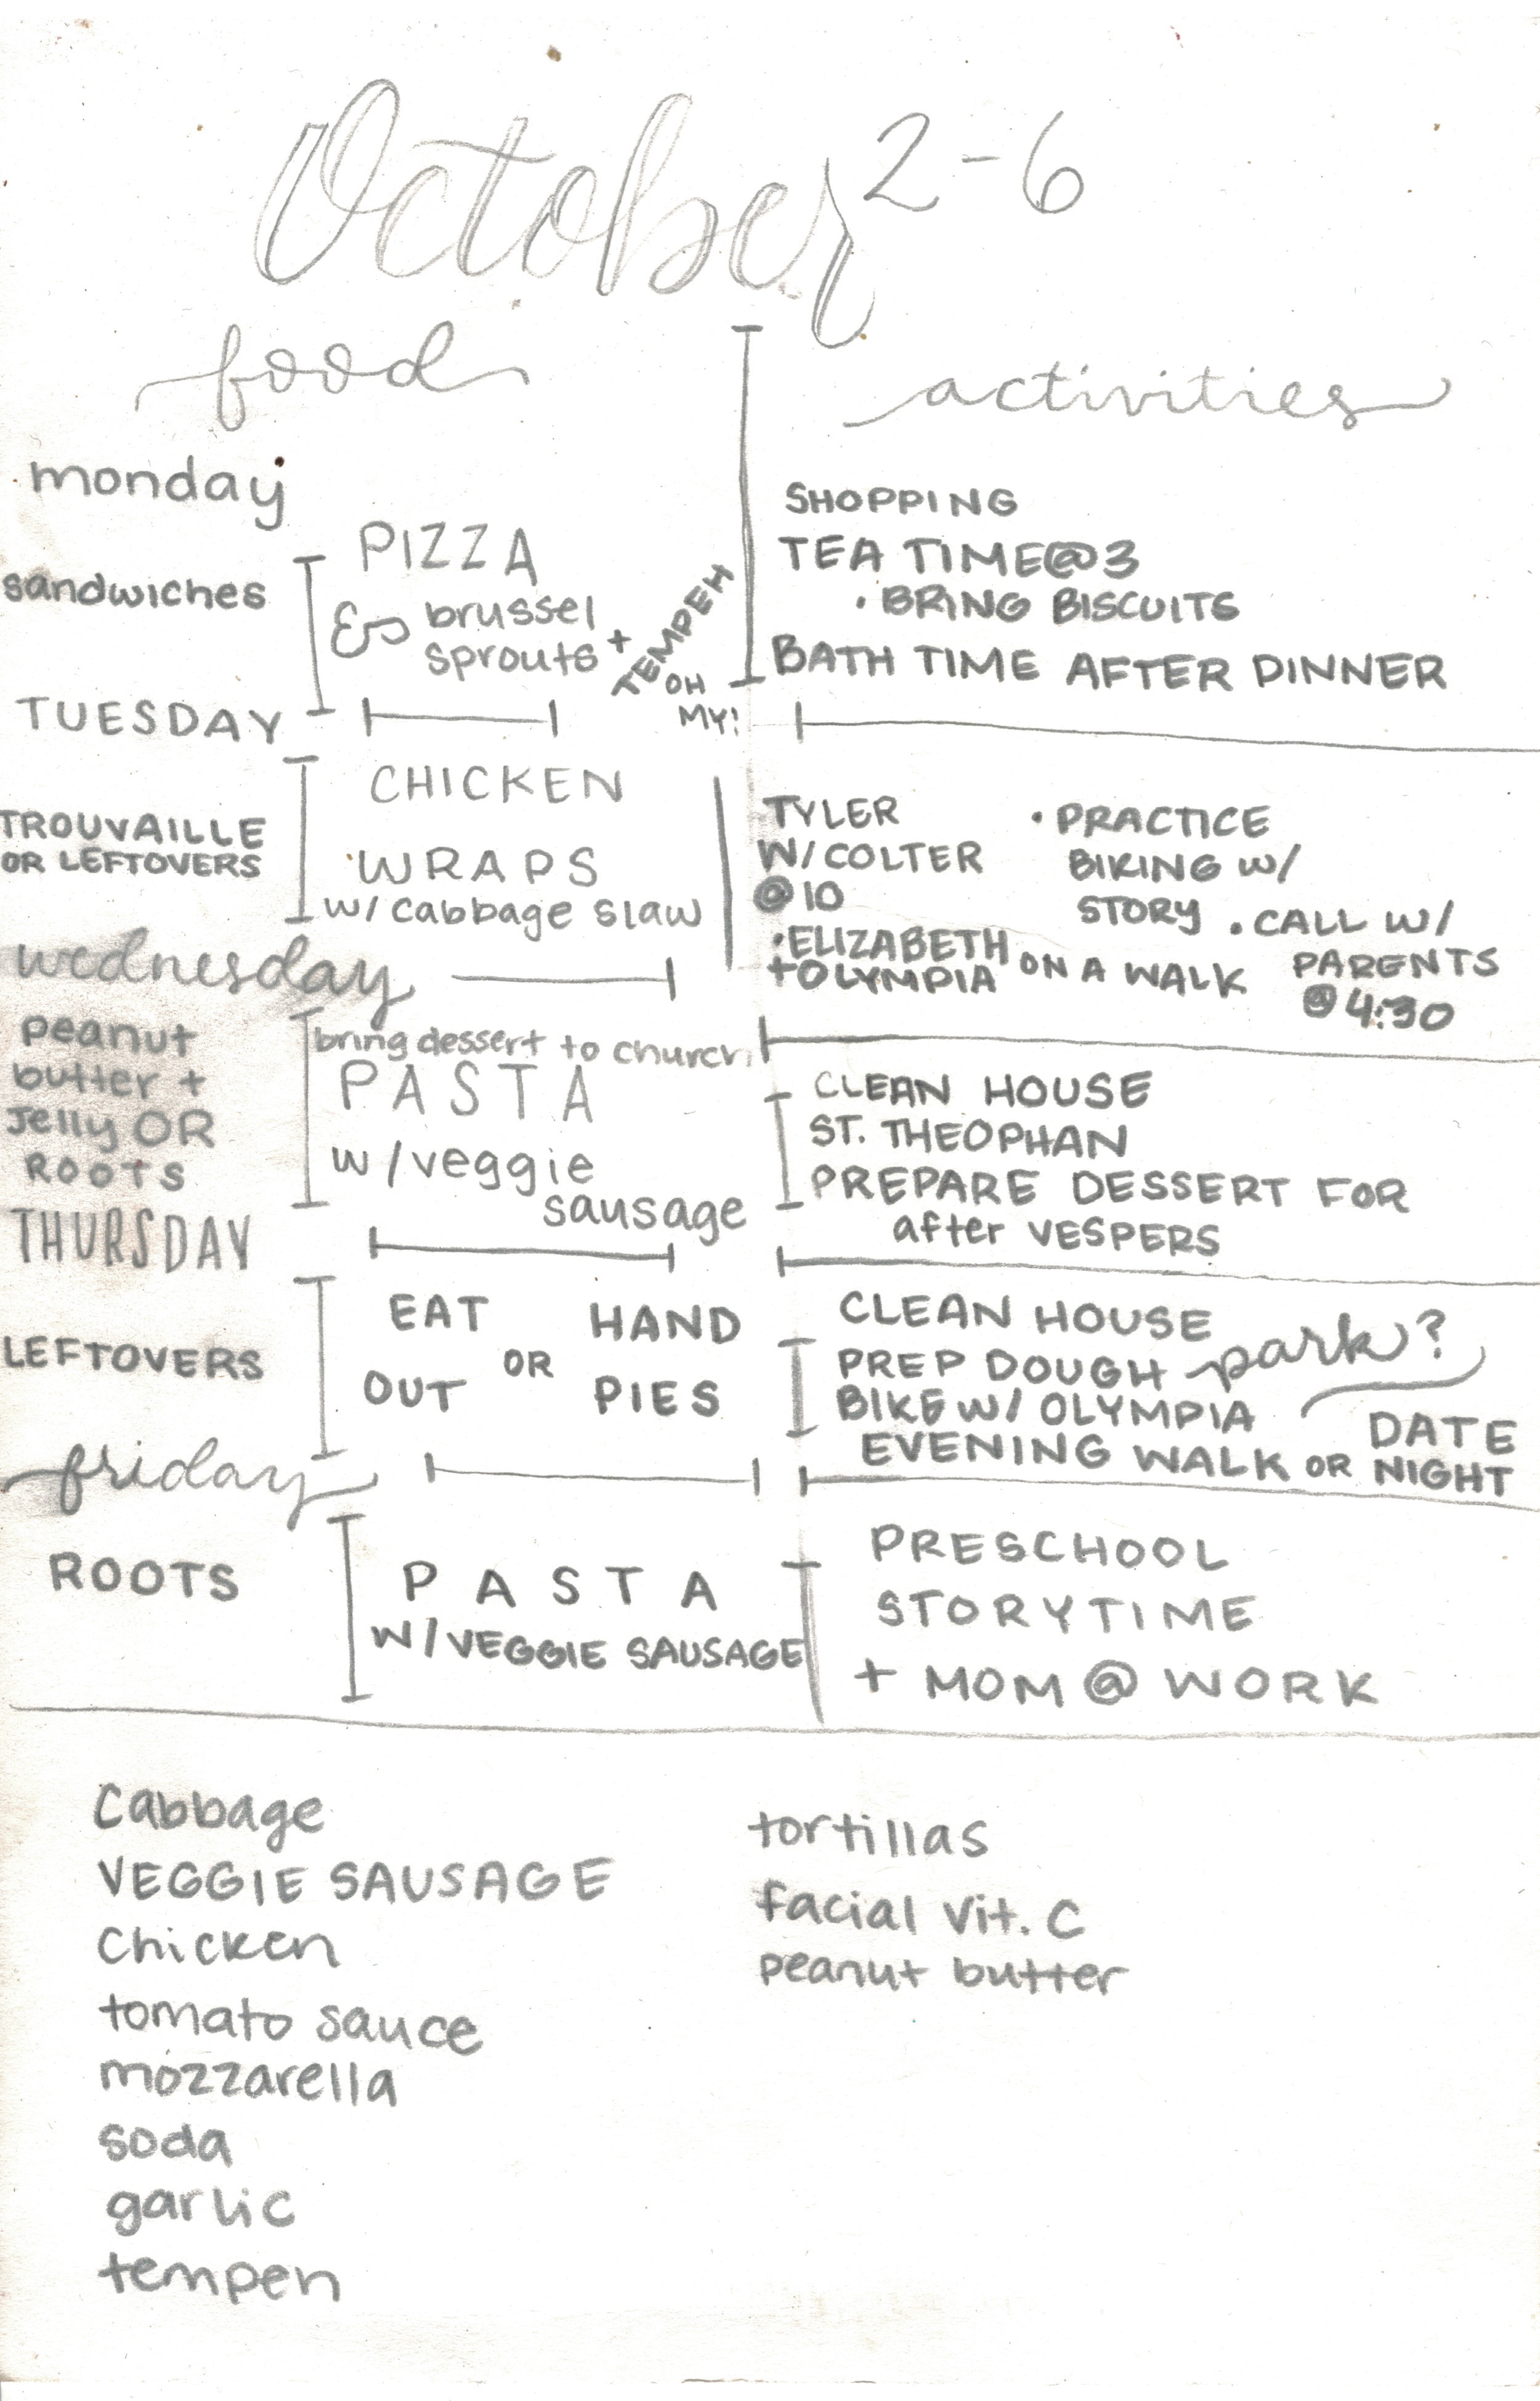 October 2-6
food
activities
monday
sandwiches
PIZZA
& brussel
sprouts +
TEMPEH
OH
MY!
SHOPPING
TEA TIME@3
• BRING BISCUITS
BATH TIME AFTER DINNER
TUESDAY
TROUVAILLE
OR LEFTOVERS
CHICKEN
WRAPS
w/ cabbage slaw
TYLER
W/ COLTER
@ 10
• ELIZABETH
+ OLYMPIA ON A WALK
• PRACTICE
BIKING W/
STORY
• CALL W/
PARENTS
@ 4:30
wednesday
peanut
butter +
Jelly OR
ROOTS
bring dessert to church
PASTA
w/veggie
sausage
CLEAN HOUSE
ST. THEOPHAN
PREPARE DESSERT FOR
after VESPERS
THURSDAY
LEFTOVERS
EAT
OUT
OR
HAND
PIES
CLEAN HOUSE
PREP DOUGH park?
BIKE W/ OLYMPIA
EVENING WALK OR DATE
NIGHT
friday
ROOTS
PASTA
W/VEGGIE SAUSAGE
PRESCHOOL
STORYTIME
+ MOM @ WORK
Cabbage
VEGGIE SAUSAGE
Chicken
tomato sauce
mozzarella
soda
garlic
tempeh
tortillas
facial Vit. C
peanut butter